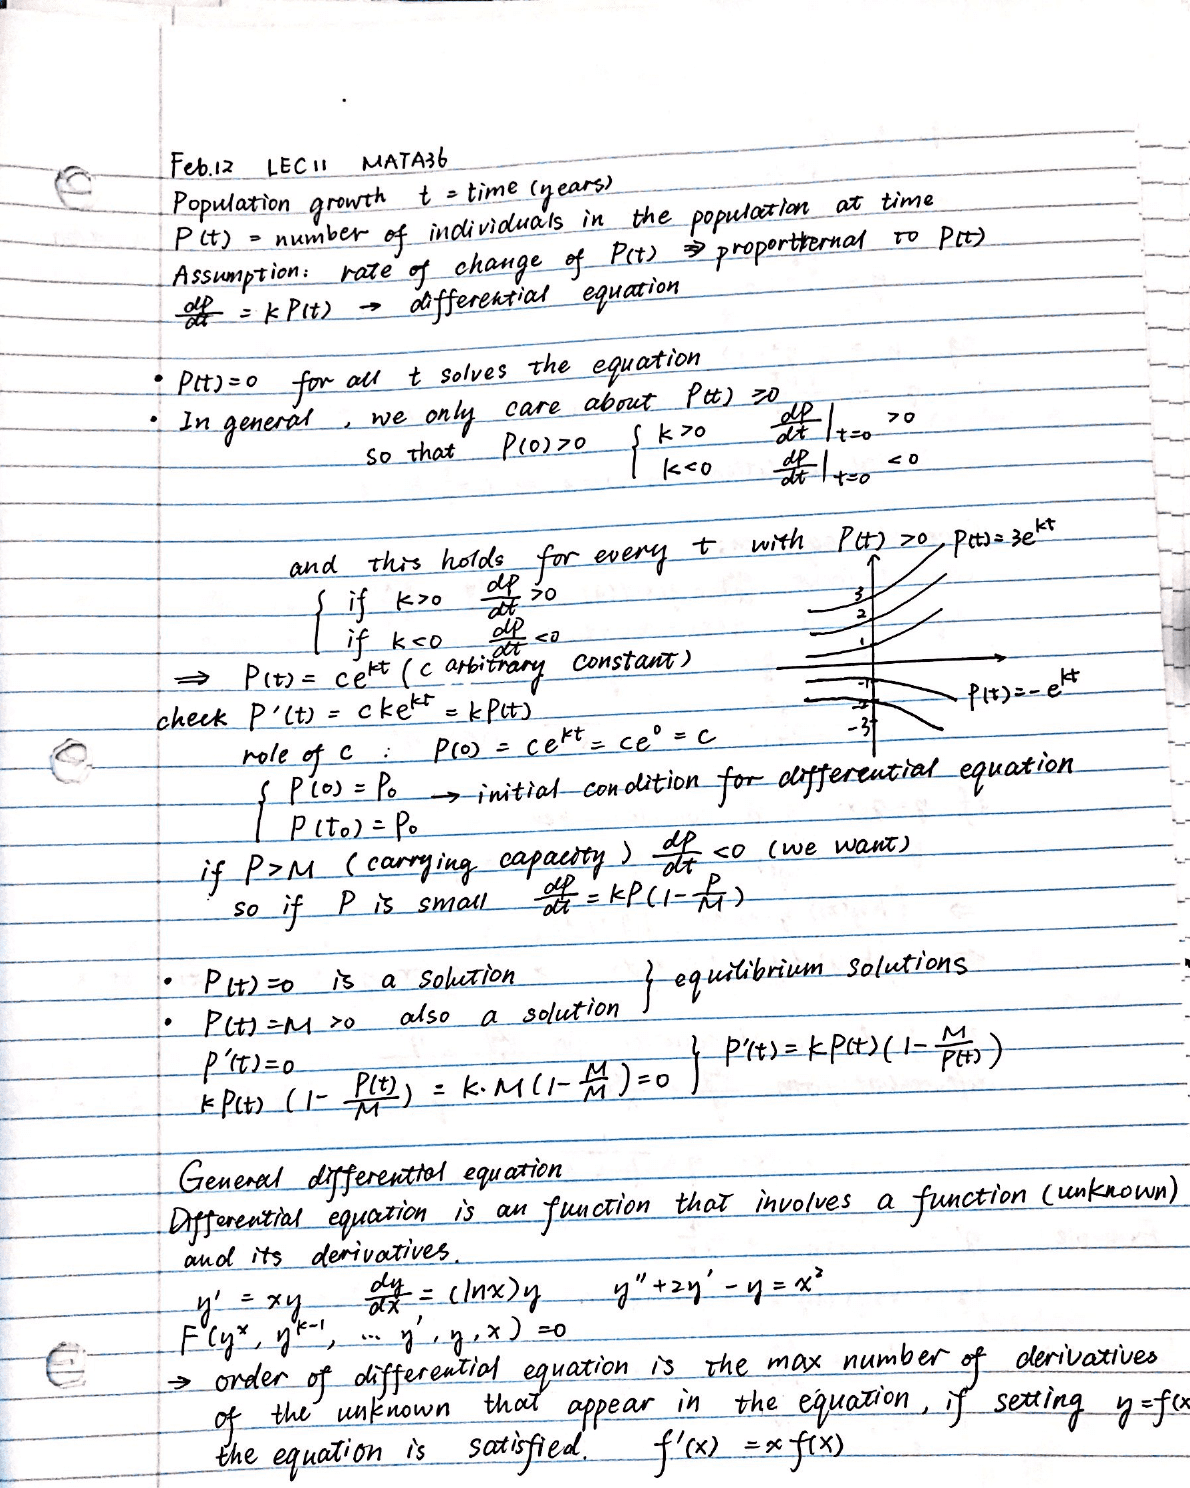 Feb.12 LEC 11 MATA36
Population growth t = time (years)
P(t) = number of individuals in the population at time
Assumption: rate of change of P(t) ⇒ proportional to P(t)
dp/dt = kP(t) → differential equation
• P(t)=0 for all t solves the equation
• In general, we only care about P(t) ≥0
so that P(0)>0 { k>0 dp/dt |t=0 >0
k<0 dp/dt |t=0 <0
and this holds for every t with P(t) >0
P(t)=3e^kt
{ if k>0 dp/dt >0
if k<0 dp/dt <0
3
2
1
-1
-2
-3
P(t)=-e^kt
⇒ P(t) = ce^kt (c arbitrary constant)
check P'(t) = cke^kt = kP(t)
role of c : P(0) = ce^kt = ce^0 = c
{ P(0) = P₀ → initial condition for differential equation
P(t₀) = P₀
if P>M (carrying capacity) dp/dt <0 (we want)
so if P is small dp/dt = kP(1-P/M)
• P(t)=0 is a solution } equilibrium solutions
• P(t)=M >0 also a solution
P'(t)=0
kP(t) (1- P(t)/M) = k·M(1-M/M)=0 } P'(t)=kP(t)(1-M/P(t))
General differential equation
Differential equation is an function that involves a function (unknown)
and its derivatives.
y' = xy dy/dx = (lnx)y y''+2y'-y=x²
F(y^x, y^k-1, ... y', y, x) =0
→ order of differential equation is the max number of derivatives
of the unknown that appear in the equation, if setting y=f(x
the equation is satisfied. f'(x) =x f(x)